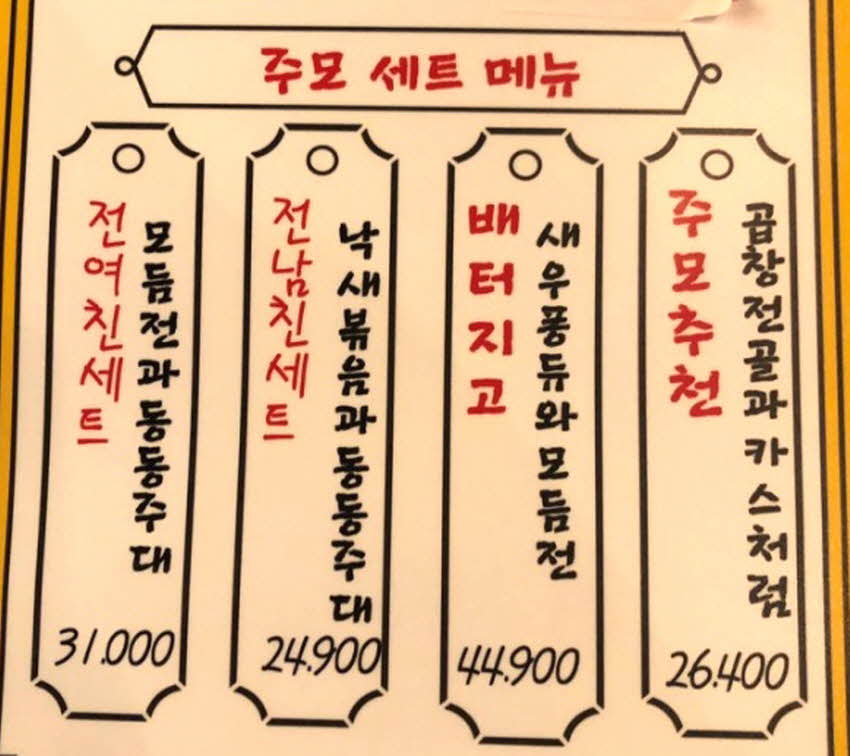 주모 세트 메뉴
전여친세트
모듬전과동동주대
31.000
전남친세트
낙새볶음과동동주대
24.900
배터지고
새우퐁듀와모듬전
44.900
주모추천
곱창전골과카스처럼
26.400